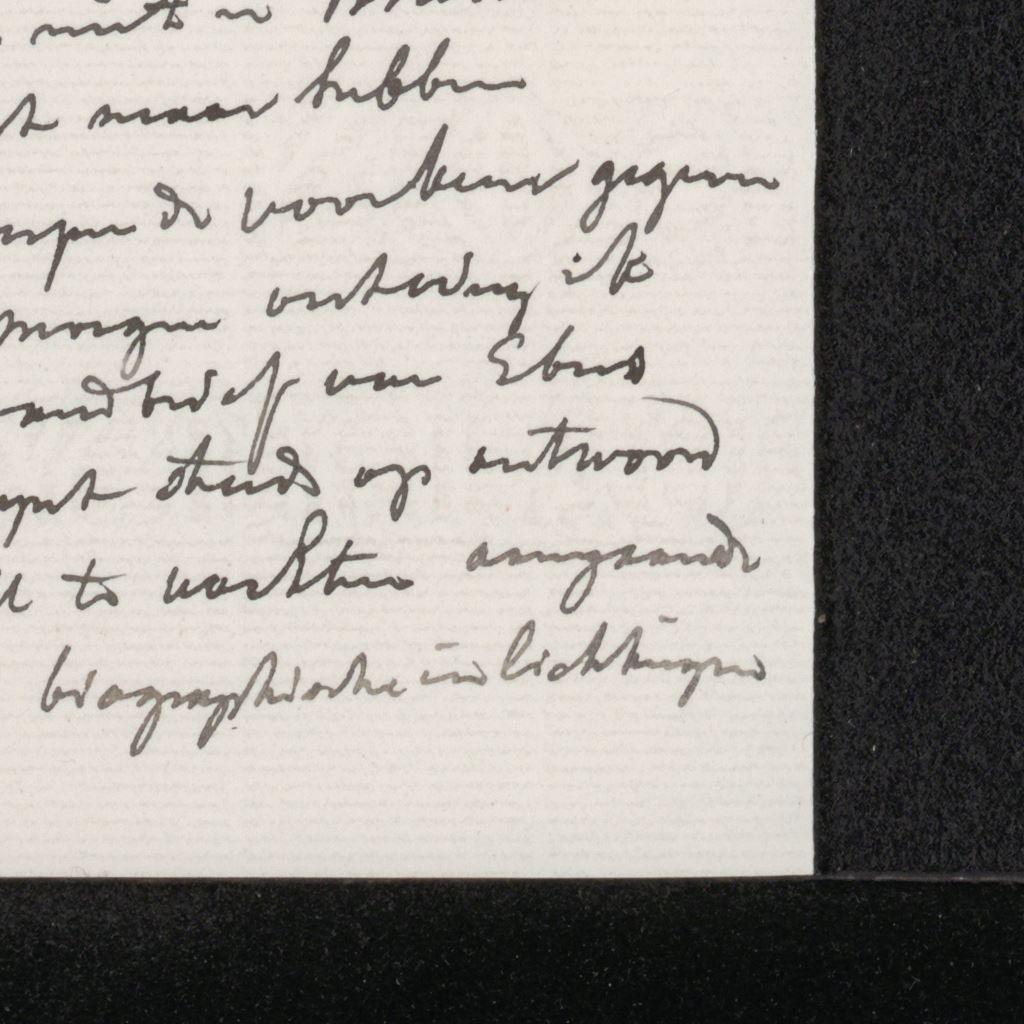 niet in
maar hebben
de voorkeur gegeven
morgen ontving ik
van Ebers
steeds op antwoord
te wachten aangaande
biographische inlichtingen